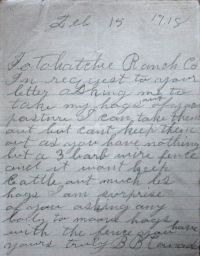 Feb 15 1918
Ranch Co
In request to your
letter asking me to
take my hogs out of your
pasture I can take them
out but cant keep them
out as you have nothing
but a 3 barb wire fence
and it wont keep
cattle out much les
hogs I am surprise
of you asking any
boddy to moove hogs
with the fence you have
yours truly B B